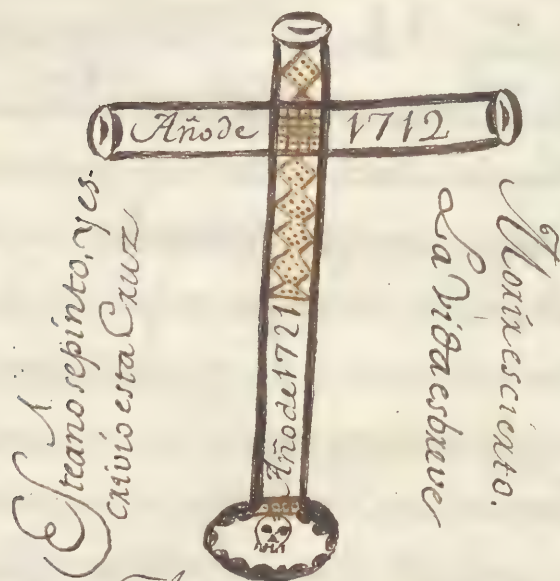 Año de 1712
Año de 1721
Esteano sepinto, yes-
crivio esta Cruz
Morir es cierto.
La Vida es breve